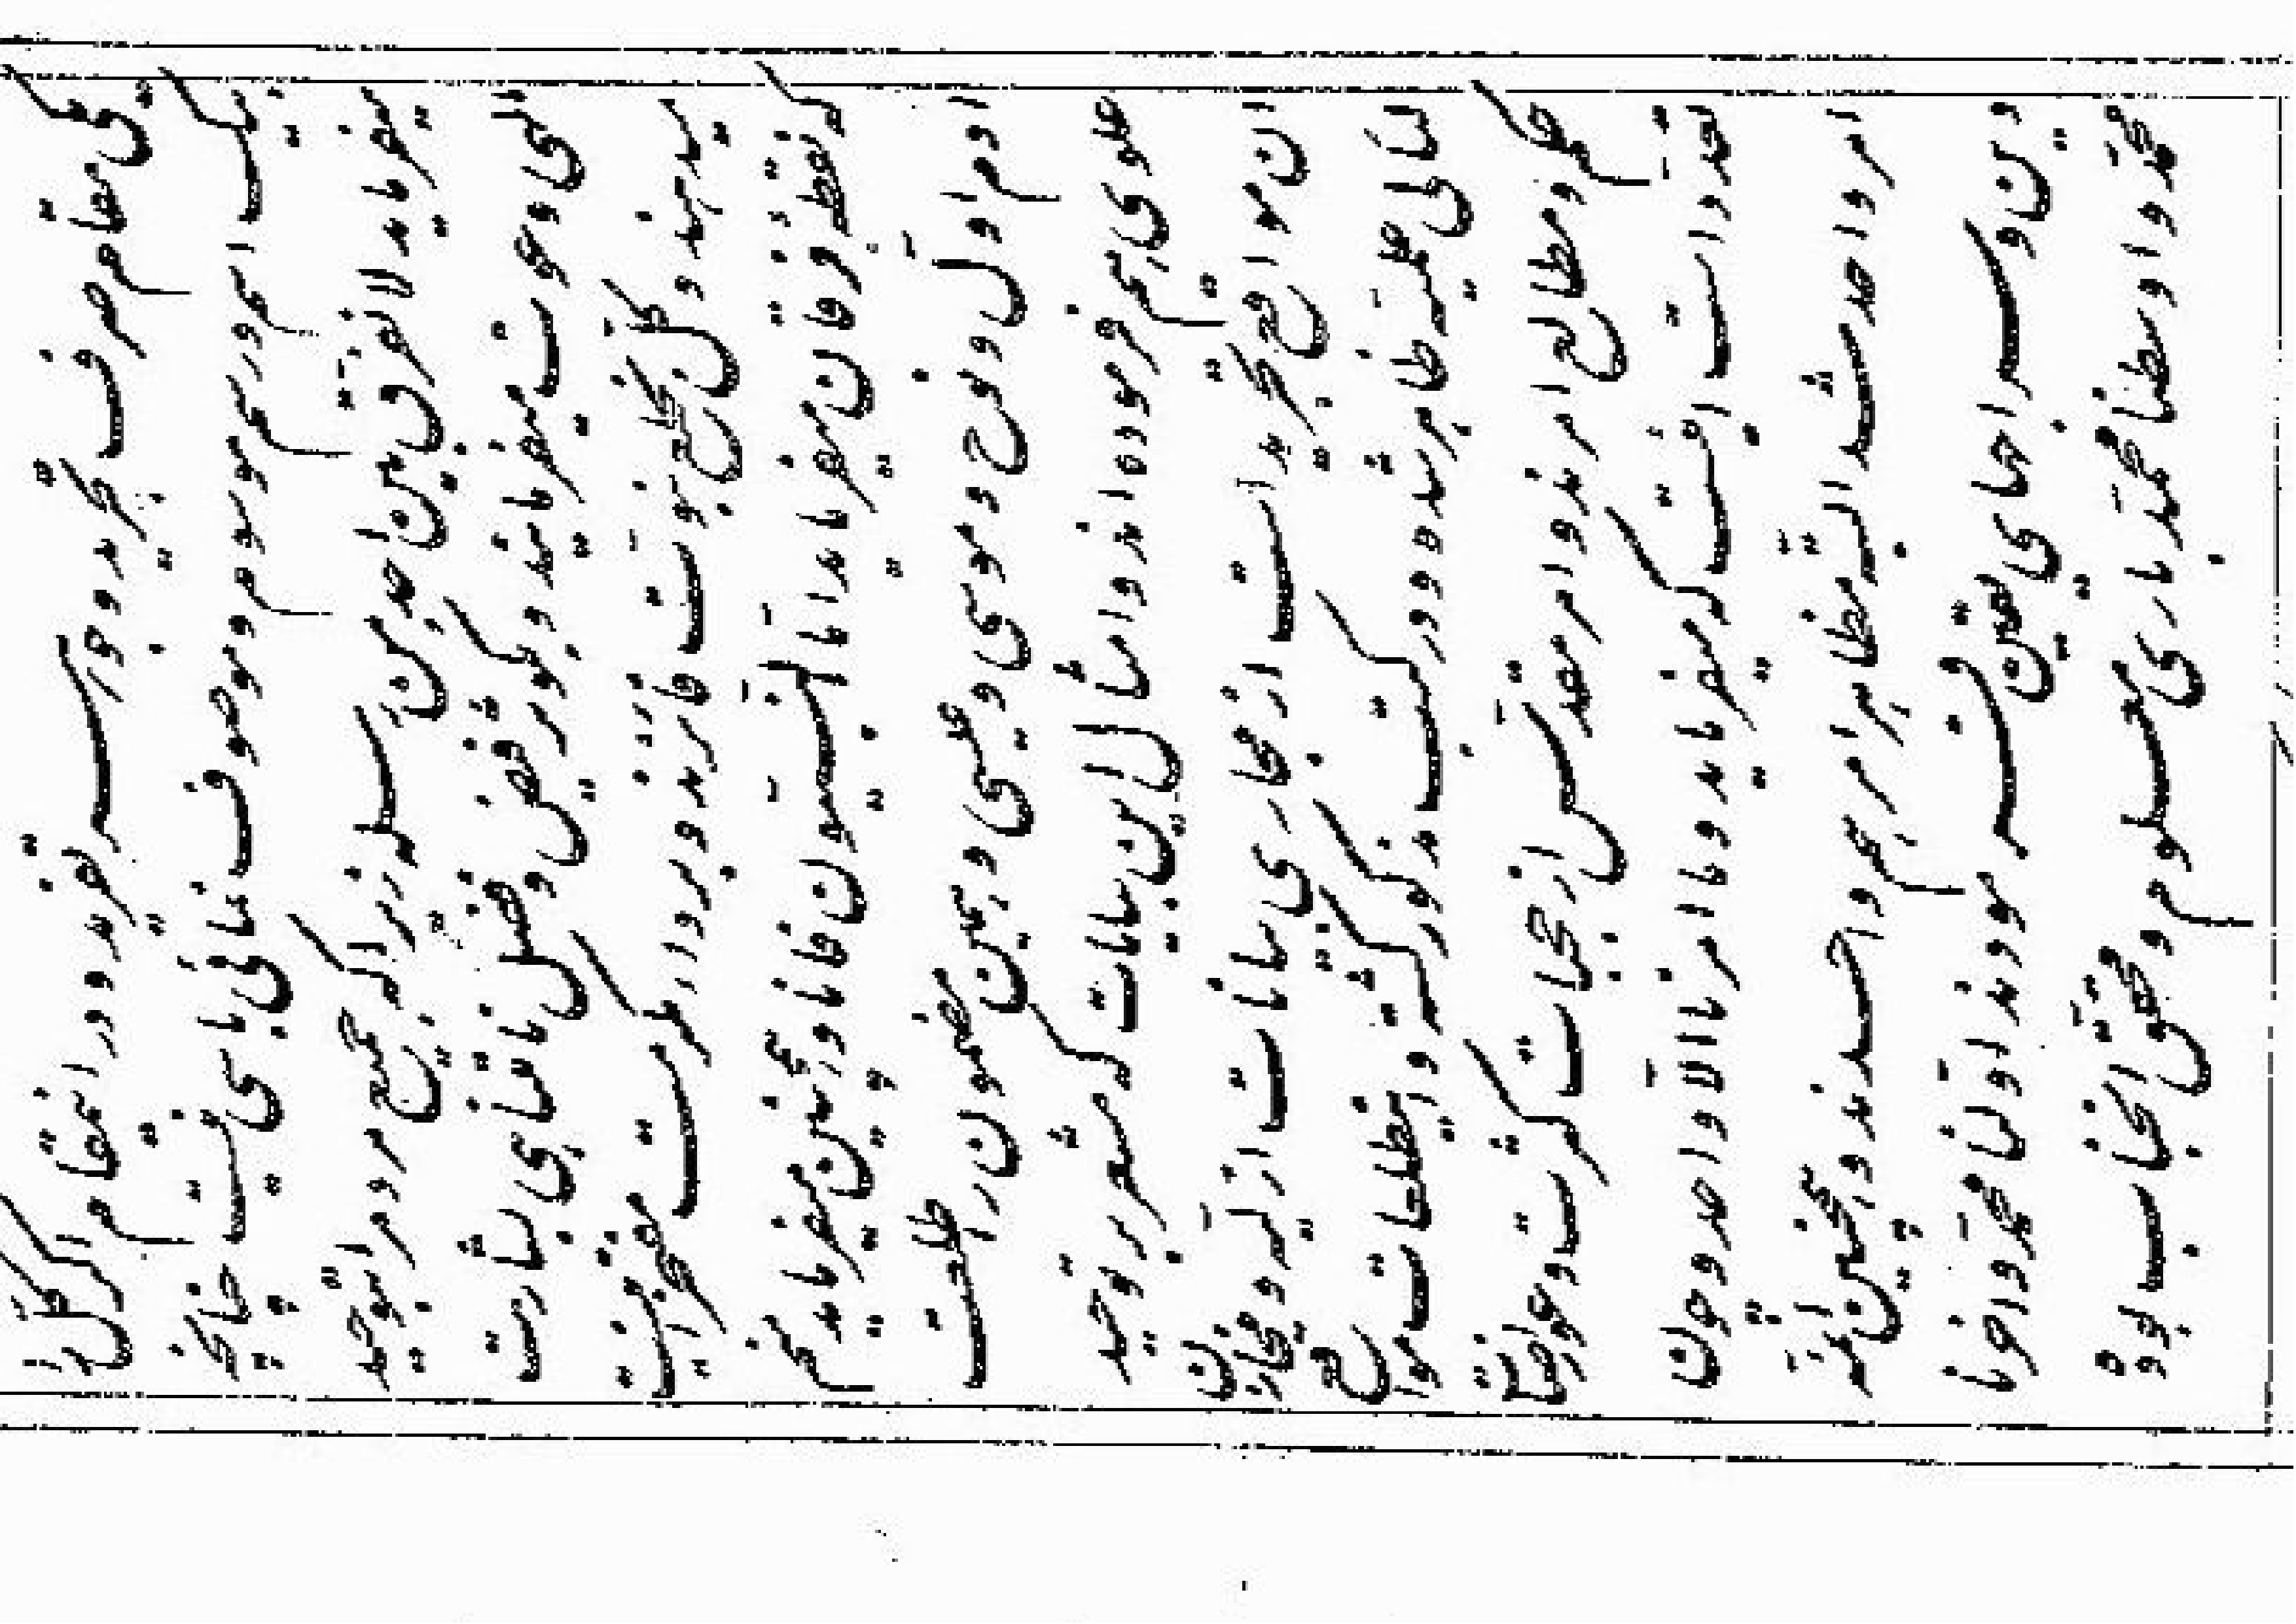 فی مقام صرف تجرید و جوهر تفرید و در انمقام اگر کل را
بیک اسم و رسم موسوم و موصوف نمائی باسی نیست چنانچه
میفرماید لا نفرق بین احد من رسله زیرا که جمیع مردم را بتوحید
الهی دعوت میفرمایند و بکوثر فیض و فضل نامتناهی بشارت
میدهند و کل بخلع نبوت فایزند و برداء مکرمت مفتخر اینست
که نقطه فرقان میفرماید اما النبیون فانا و همچنین میفرماید منم
ادم اول و نوح و موسی و عیسی و همین مضمون را طلعت
علوی هم فرموده اند و امثال این بیانات که مشعر بر توحید
ان مواقع تجرید است از مجاری بیانات ازلیه و مخازن
لئالی علمیه ظاهر شده و در کتب مذکور گشته و این طلعات مواقع
حکم و مطالع امرند و امر مقدس از حجبات کثرت و عوارضات
تعدد است اینست که میفرماید و ما امرنا الّا واحد و چون
امر واحد شد البتّه مظاهر امر هم واحدند و همچنین ائمّه
دین و سراجهای یقین فرمودند اوّلنا محمّد و اخرنا
محمّد و اوسطنا محمّد باری معلوم و محقّق انجناب بوده